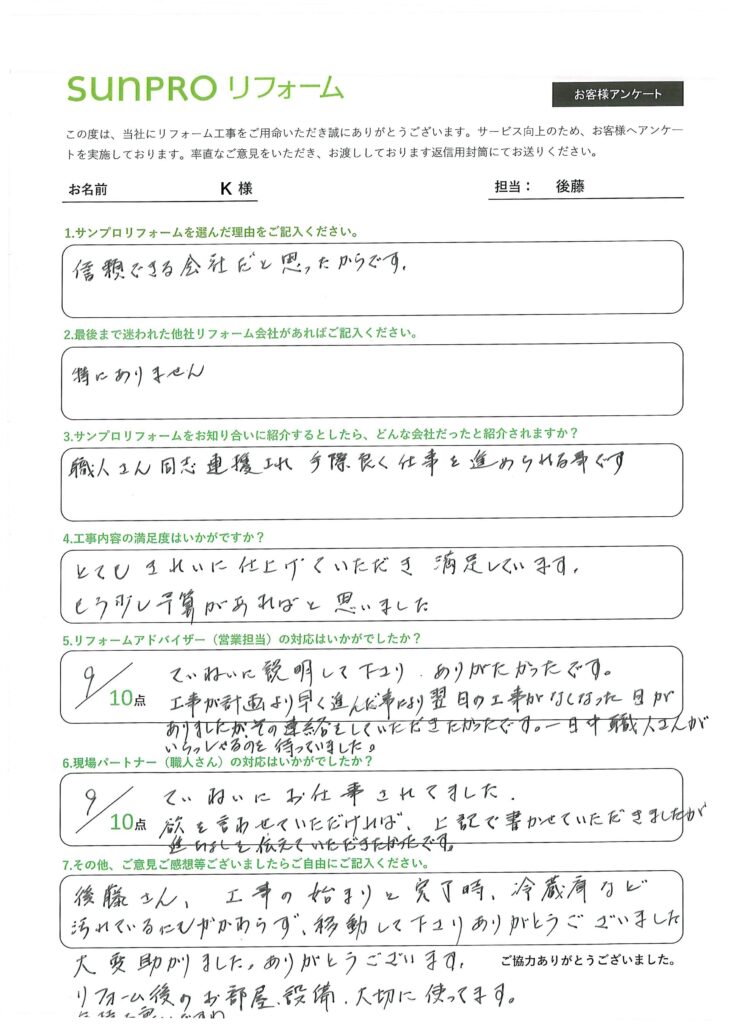 SUNPRO リフォーム
お客様アンケート
この度は、当社にリフォーム工事をご用命いただき誠にありがとうございます。サービス向上のため、お客様へアンケー
トを実施しております。率直なご意見をいただき、お渡ししております返信用封筒にてお送りください。
お名前 K 様 担当： 後藤
1.サンプロリフォームを選んだ理由をご記入ください。
信頼できる会社だと思ったからです。
2.最後まで迷われた他社リフォーム会社があればご記入ください。
特にありません
3.サンプロリフォームをお知り合いに紹介するとしたら、どんな会社だったと紹介されますか？
職人さん同志連携され 手際良く仕事を進められる事です
4.工事内容の満足度はいかがですか？
とてもきれいに仕上げていただき 満足しています。
もう少し予算があればと思いました
5.リフォームアドバイザー（営業担当）の対応はいかがでしたか？
9/10点 ていねいに説明して下さり、ありがたかったです。
工事が計画より早く進んだ事により翌日の工事がなくなった日が
ありましたがその連絡をしていただきたかったです。一日中職人さんが
いらっしゃるのを待っていました。
6.現場パートナー（職人さん）の対応はいかがでしたか？
9/10点 ていねいにお仕事されてました.
欲を言わせていただければ、上記で書かせていただきましたが
進ちょくを伝えていただきたかったです。
7.その他、ご意見ご感想等ございましたらご自由にご記入ください。
後藤さん、工事の始まりと完了時、冷蔵庫など
汚れているにもかかわらず、移動して下さりありがとうございました
大変助かりました。ありがとうございます。
ご協力ありがとうございました。
リフォーム後のお部屋、設備、大切に使ってます。